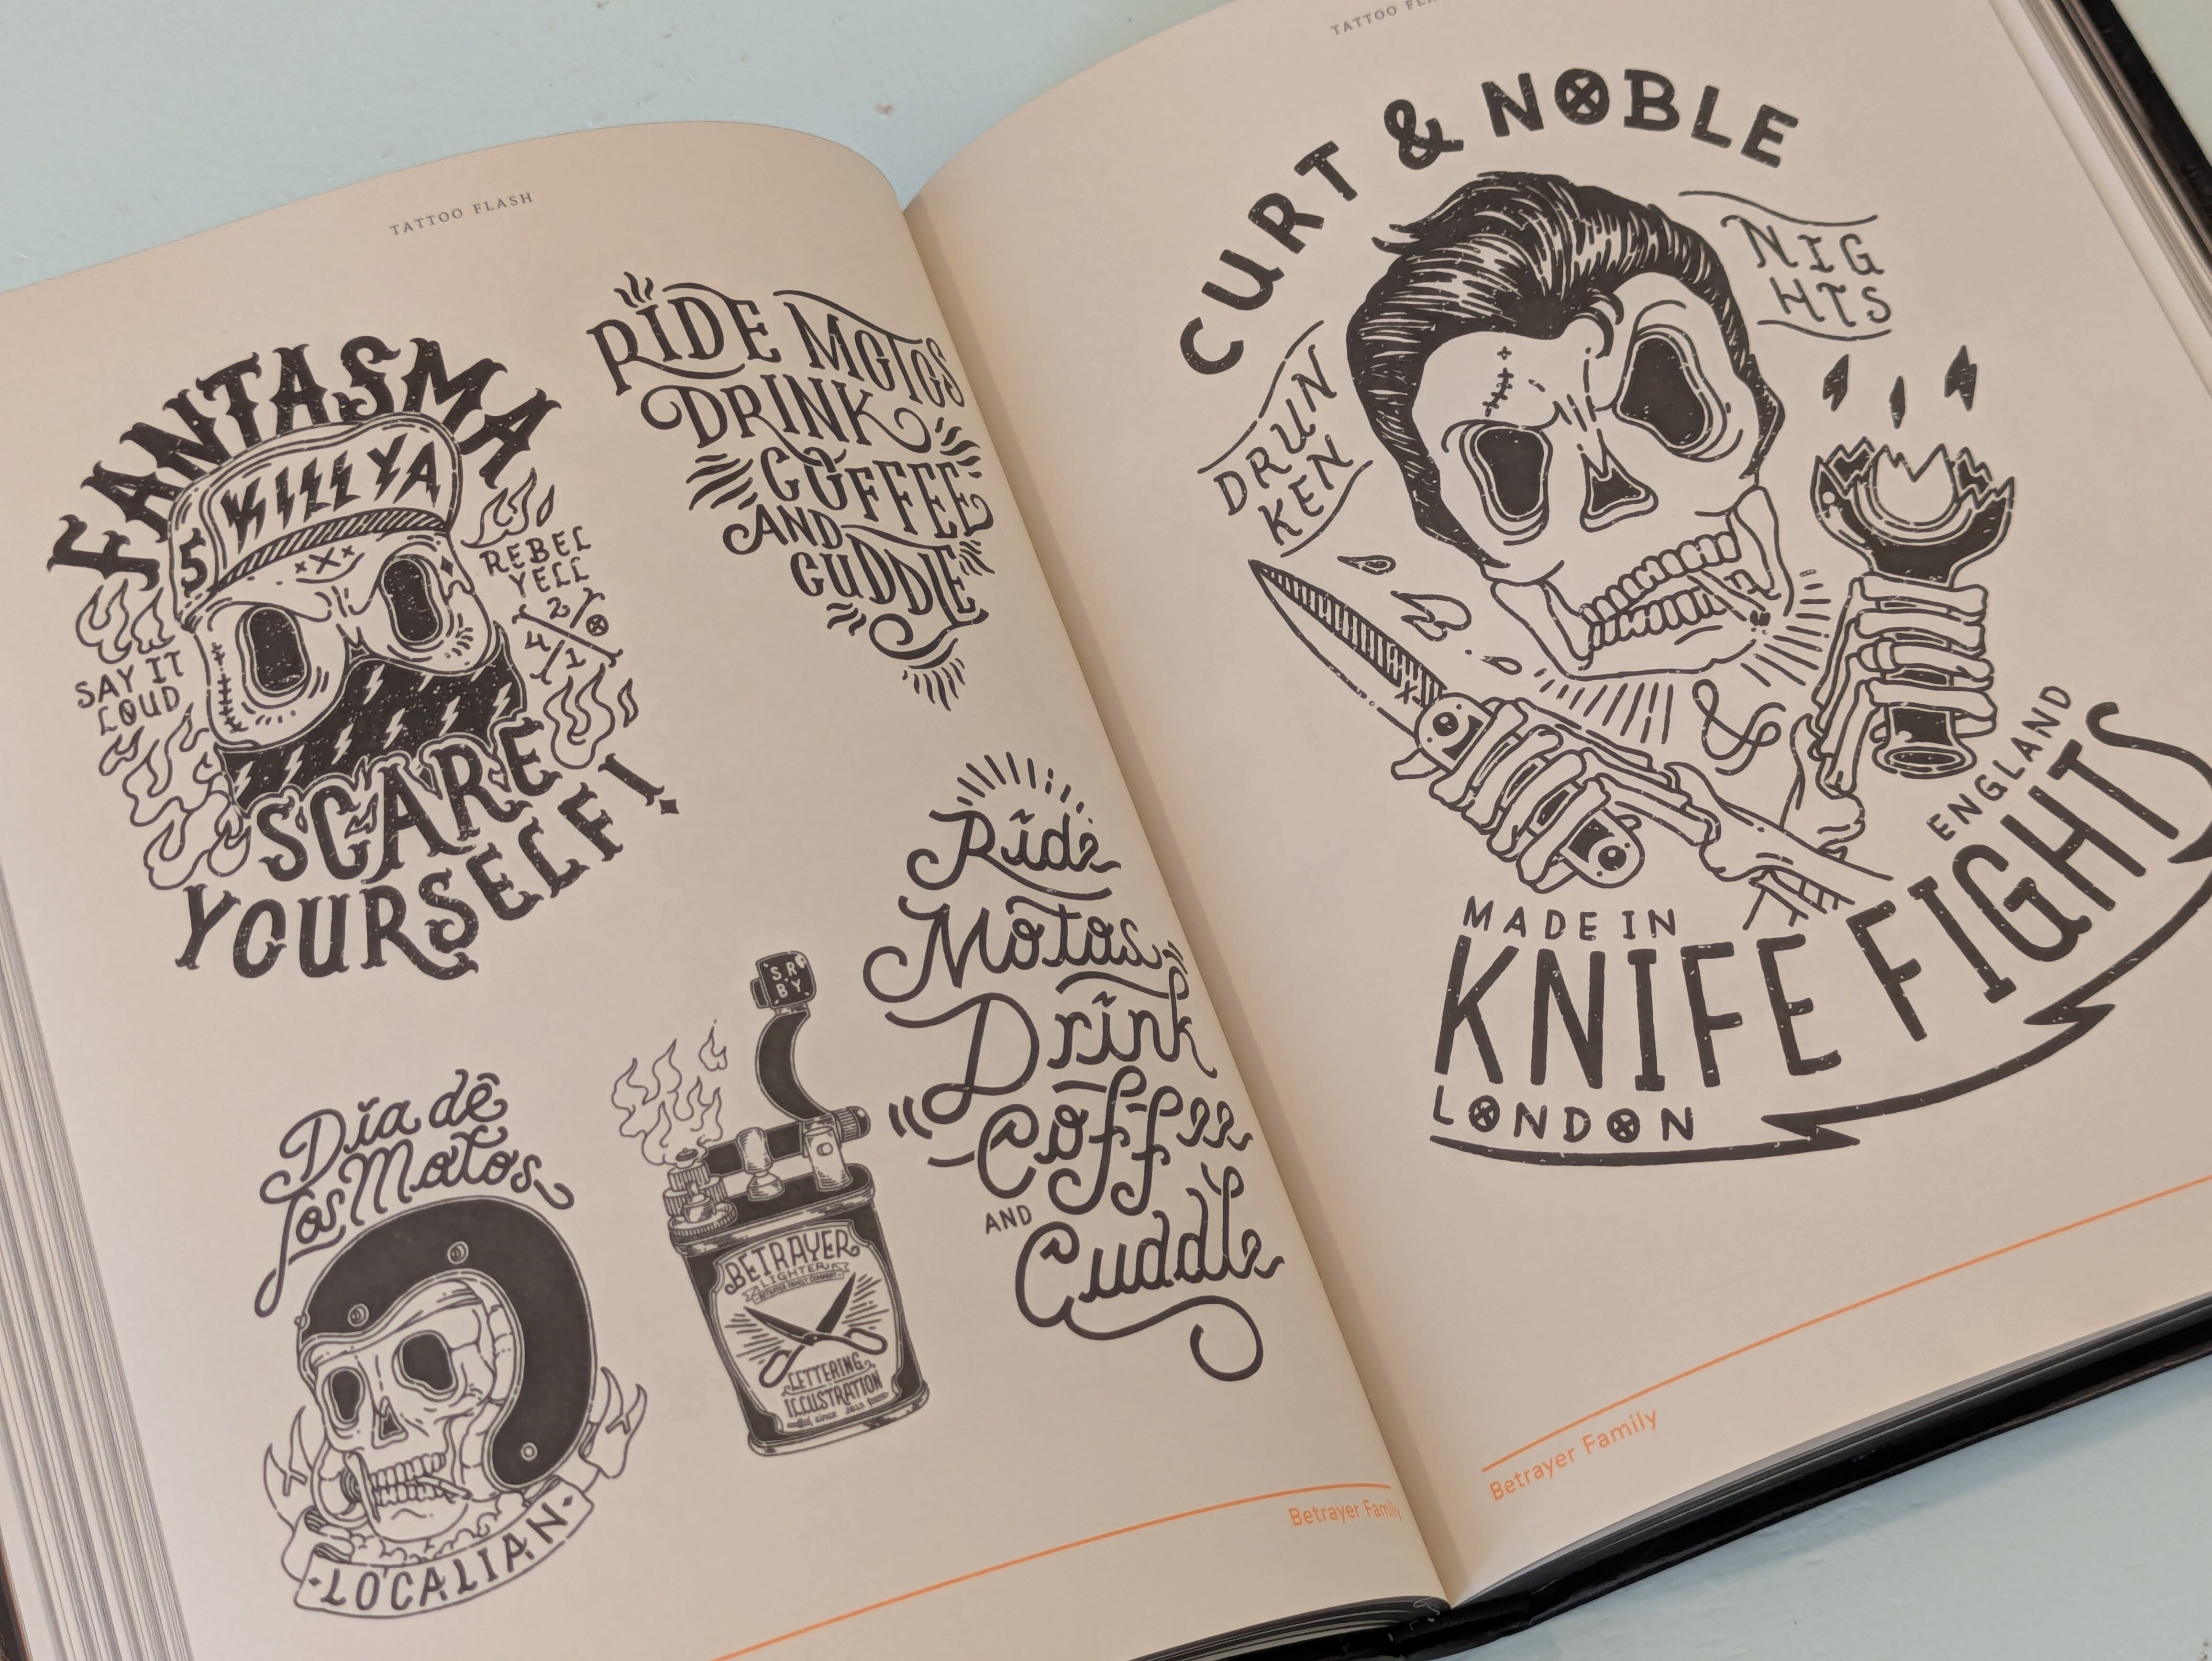 TATTOO FLASH
FANTASMA
KILL YA
5
REBEL
YELL
2
4
1
SAY IT
LOUD
SCARE
YOURSELF!
RIDE MOTOS
DRINK
COFFEE
AND
CUDDLE
Ride
Motos
Drink
Coffee
AND
Cuddle
Día de
los Motos
LOCALIAN
SR
BY
BETRAYER
LIGHTER
BETRAYER FAMILY COMPANY
LETTERING
ILLUSTRATION
since 2013
Betrayer Family
CURT & NOBLE
NIG
HTS
DRUN
KEN
&
ENGLAND
MADE IN
KNIFE FIGHTS
LONDON
Betrayer Family